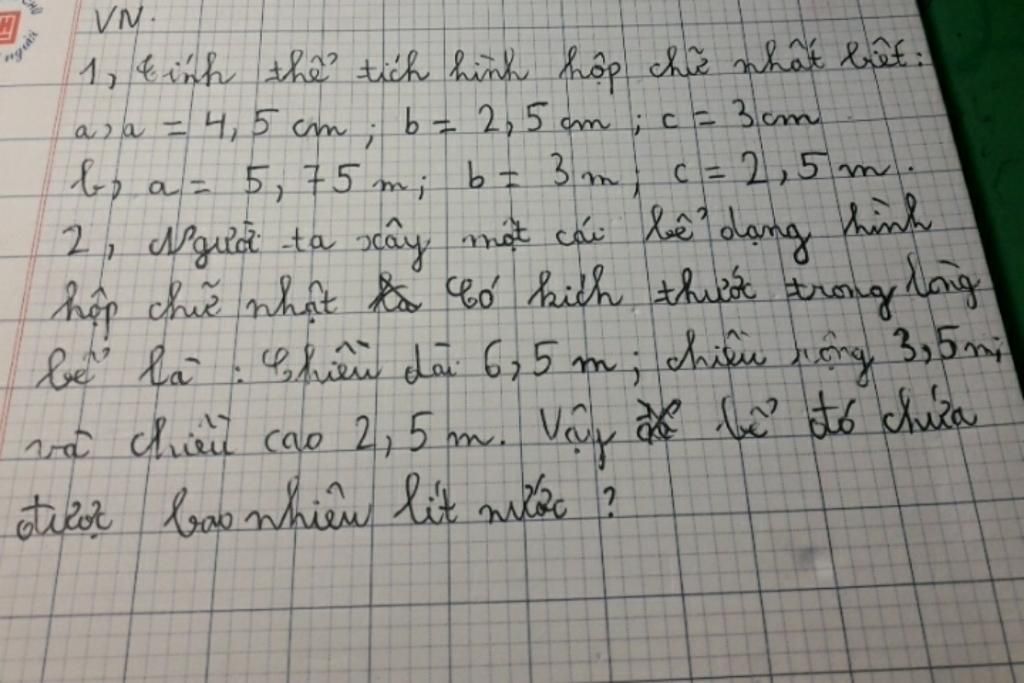 VN.
1, tính thể tích hình hộp chữ nhật biết:
a, a = 4,5 cm ; b = 2,5 cm ; c = 3 cm
b, a = 5,75 m; b = 3 m; c = 2,5 m.
2, Người ta xây một cái bể dạng hình
hộp chữ nhật có kích thước trong lòng
bể là : Chiều dài 6,5 m; chiều rộng 3,5m;
và chiều cao 2,5 m. Vậy bể đó chứa
được bao nhiêu lít nước ?